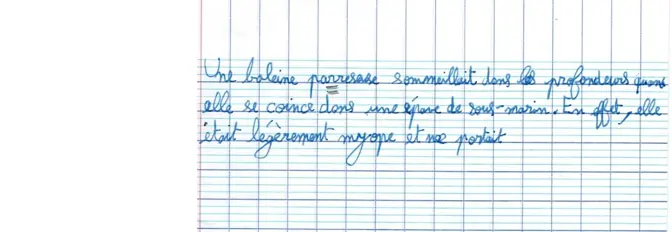 Une baleine parresase sommeillait dans les profondeurs quand
elle se coince dans une épave de sous-marin. En effet, elle
était légèrement myope et ne portait